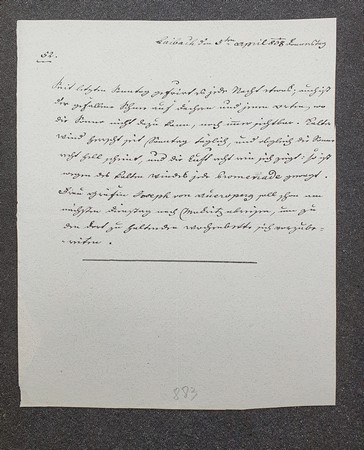 Laibach den 8ten April 808 Donnerstag
52.
Seit letzten Sonntag gefriert es jede Nacht etwas, auch ist
der gefallene Schnee auf Dächern und jenen Orten, wo
die Sonne nicht dazu kann, noch immer sichtbar. Kalter
Wind herrscht seit Sonntag täglich, und obgleich die Sonne
recht hell scheint, und die Luft sich zeigt: so ist
wegen des kalten Windes jede Promenade gewagt.
Frau Gräfin Joseph von Auersperg soll schon am
nächsten Dienstag nach abreisen, um zu
den dort zu haltenden Wochenbette sich vorzube-
reiten.
883